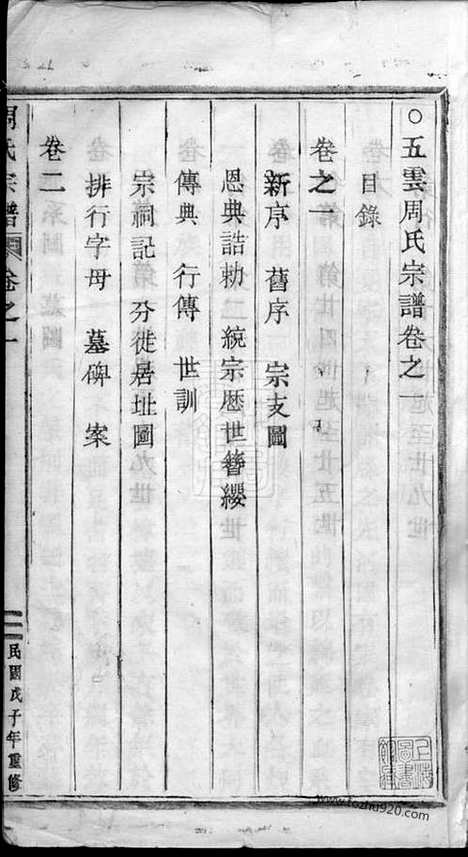 五雲周氏宗譜卷之一
目錄
卷之一
新序 舊序 宗支圖
恩典誥勅 統宗歷世簪纓
傳典 行傳 世訓
宗祠記 分徙居址圖
排行字母 墓碑 案
卷二
周氏宗譜 卷之一
民國戊子年重修
上海圖書館藏
www.fozhu920.com